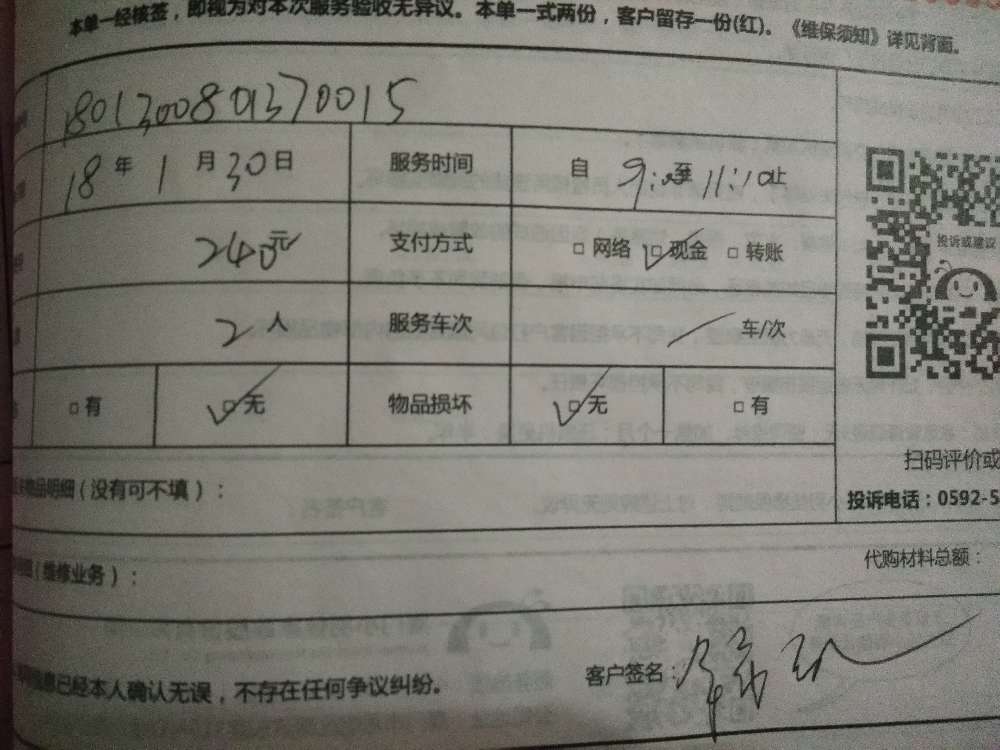 本单一经核签，即视为对本次服务验收无异议。本单一式两份，客户留存一份(红)。《维保须知》详见背面。
180130080370015
18 年 1 月 30 日 服务时间 自 9:00 至 11:10 止
240元 支付方式 □ 网络 ☑ 现金 □ 转账
投诉或建议
2 人 服务车次 / 车/次
□ 有 ☑ 无 物品损坏 ☑ 无 □ 有
扫码评价或
物品明细（没有可不填）：
投诉电话：0592-5
代购材料总额：
（维修业务）：
信息已经本人确认无误，不存在任何争议纠纷。
客户签名：